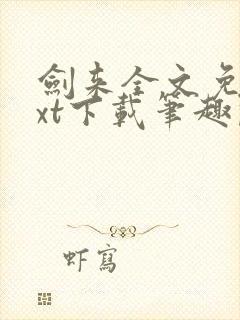 劍来全文免
xt下載筆趣
虾寫